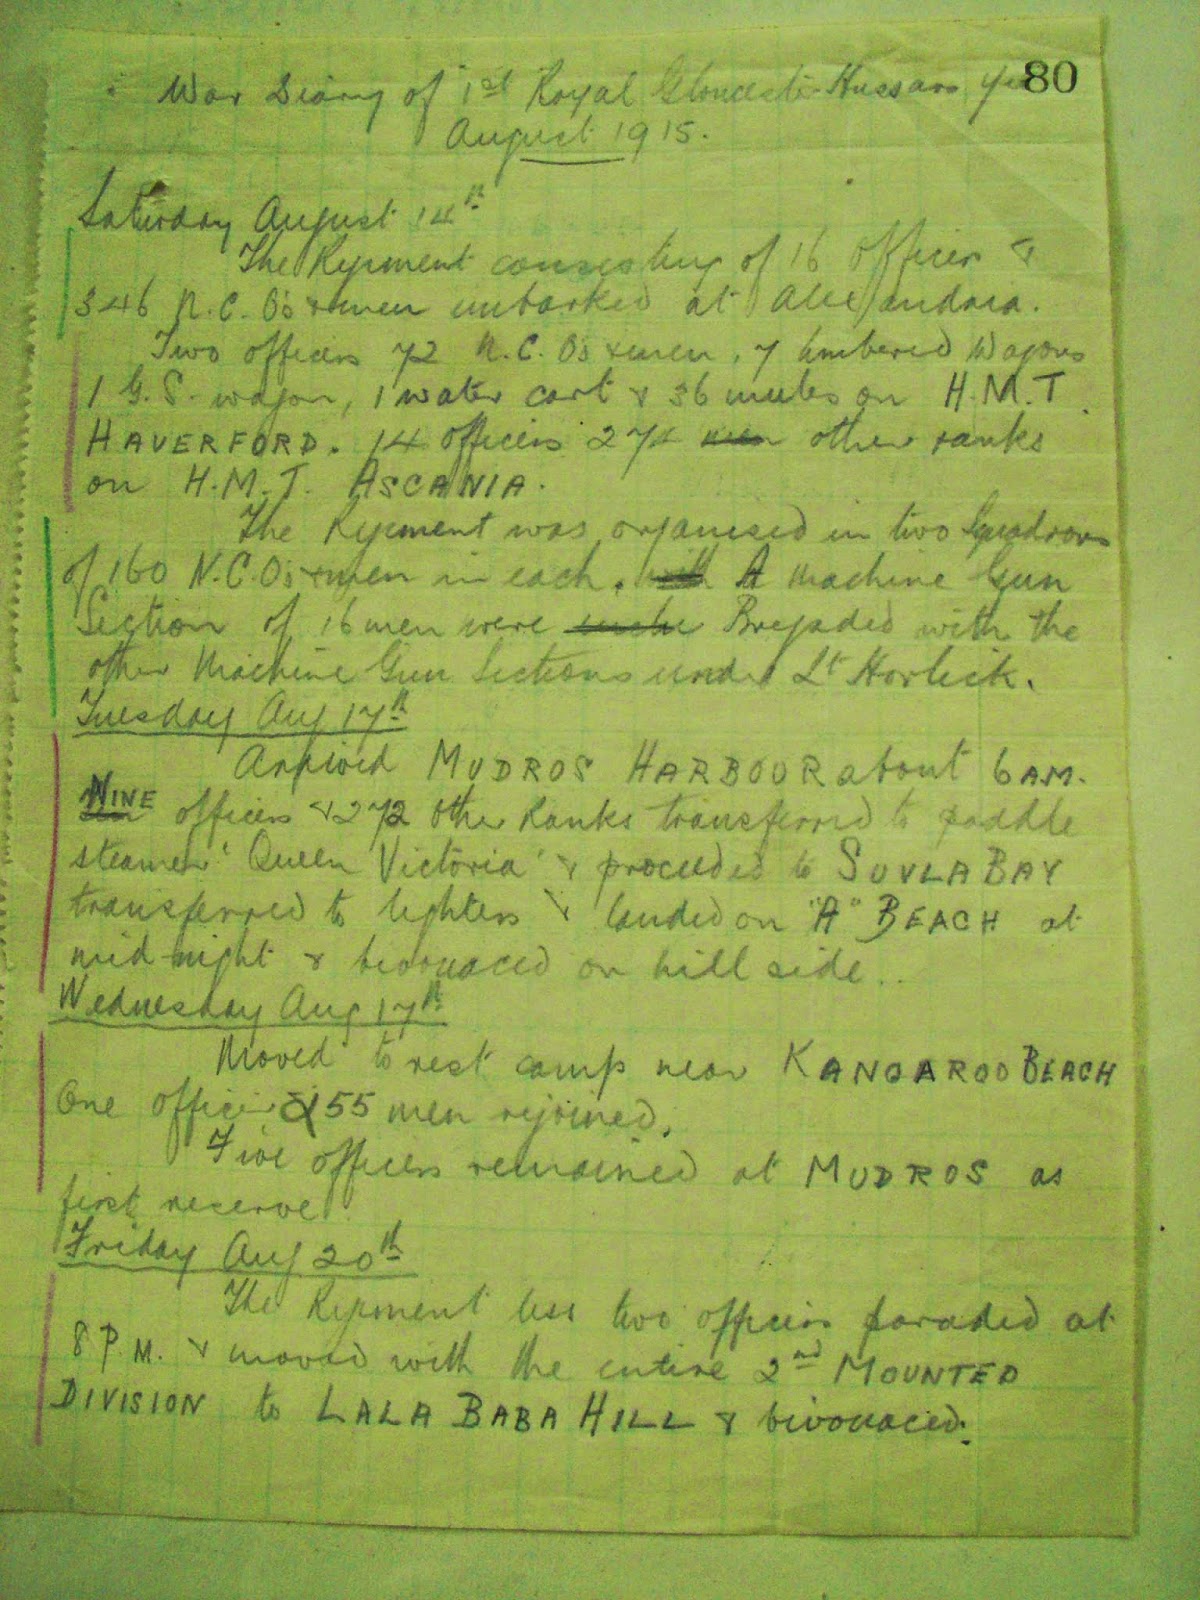 War Diary of 1st Royal Gloucester Hussars 80
August 1915.
Saturday August 14th
The Regiment consisting of 16 officers &
346 N.C.Os & men embarked at Alexandria.
Two officers 72 N.C.Os & men, 7 limbered Wagons
1 G.S. wagon, 1 water cart & 36 mules on H.M.T.
HAVERFORD. 14 officers 274 men other ranks
on H.M.T. ASCANIA.
The Regiment was organised in two Squadrons
of 160 N.C.Os & men in each. with A Machine Gun
Section of 16 men were Brigaded with the
other Machine Gun Sections under Lt Horlick.
Tuesday Aug 17th
Arrived MUDROS HARBOUR about 6 AM.
NINE officers & 272 other Ranks transferred to paddle
steamer 'Queen Victoria' & proceeded to SUVLA BAY
transferred to lighters & landed on "A" BEACH at
mid-night & bivouaced on hill side..
Wednesday Aug 17th
Moved to rest camp near KANGAROO BEACH
One officer & 55 men rejoined.
Five officers remained at MUDROS as
first reserve
Friday Aug 20th
The Regiment less two officers paraded at
8 P.M. & moved with the entire 2nd MOUNTED
DIVISION to LALA BABA HILL & bivouaced.